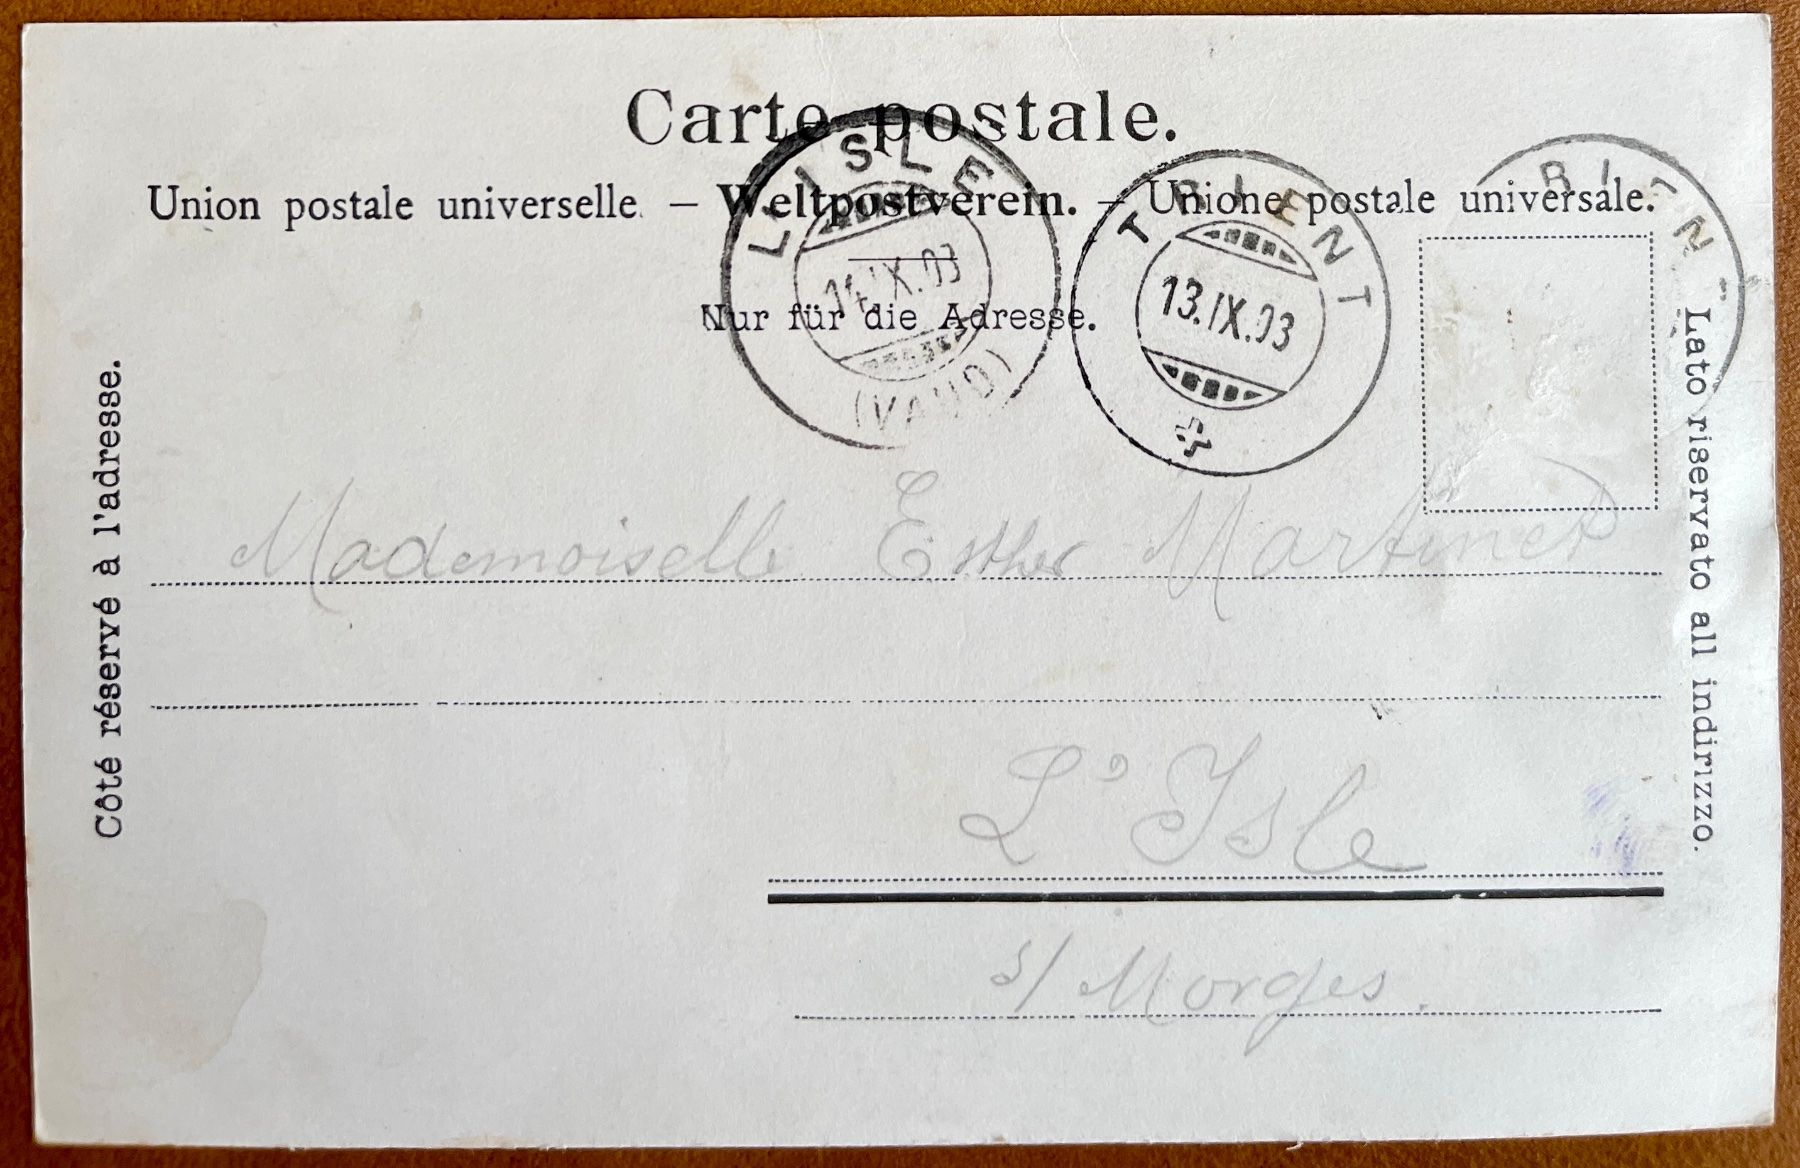 Carte postale.
Union postale universelle. – Weltpostverein. – Unione postale universale.
Nur für die Adresse.
L'ISLE
14.IX.03
(VAUD)
TRIENT
13.IX.03
RIENT
Côté réservé à l'adresse.
Lato riservato all indirizzo.
Mademoiselle Esther Martinet
L'Isle
s/ Morges.